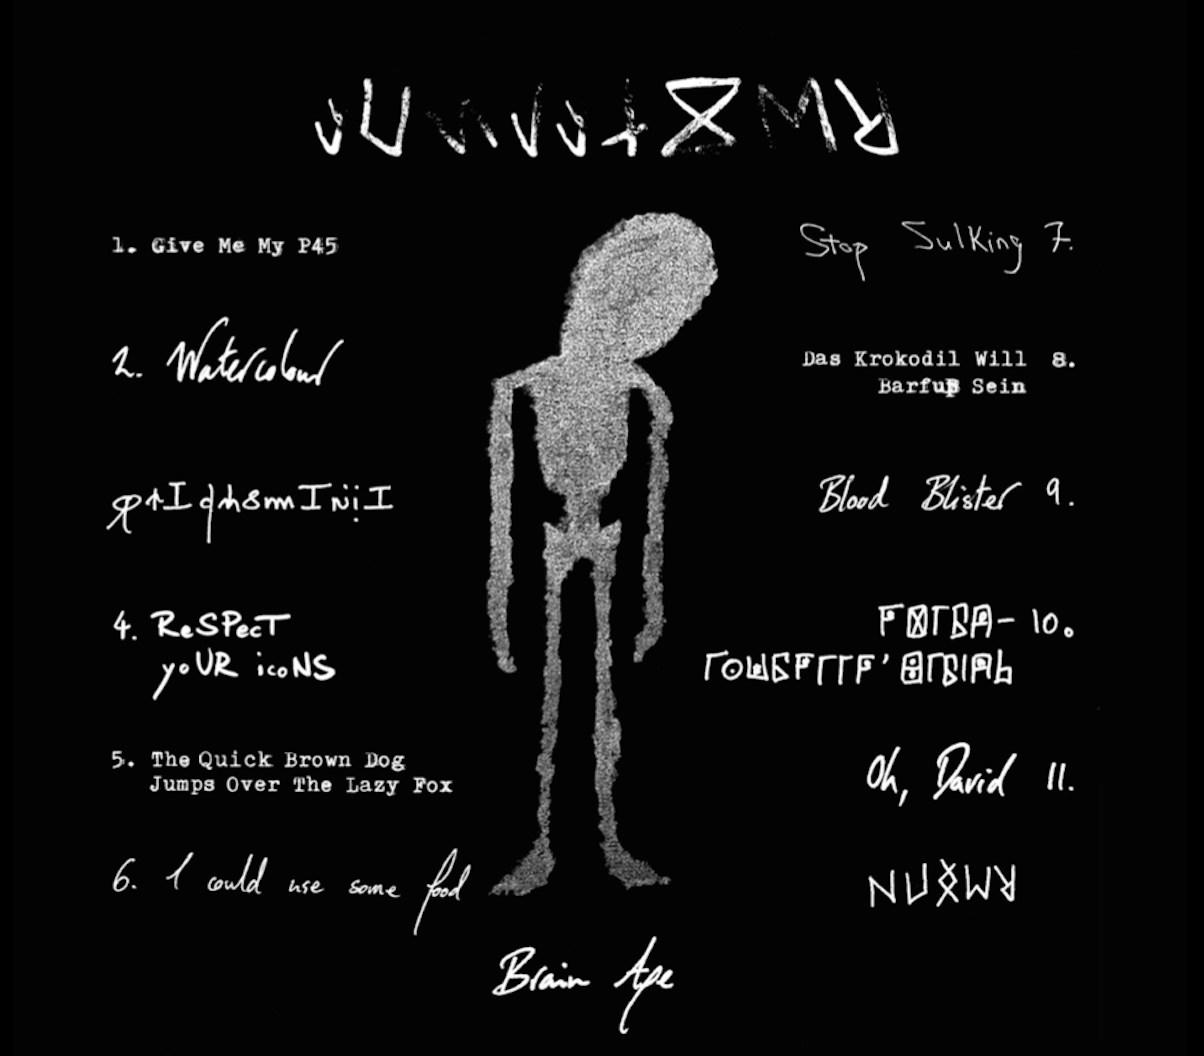 1. Give Me My P45
2. Watercolour
4. ReSPecT
yoUR icoNS
5. The Quick Brown Dog
Jumps Over The Lazy Fox
6. I could use some food
Stop Sulking 7.
Das Krokodil Will 8.
Barfuß Sein
Blood Blister 9.
10.
Oh, David 11.
Brain Ape